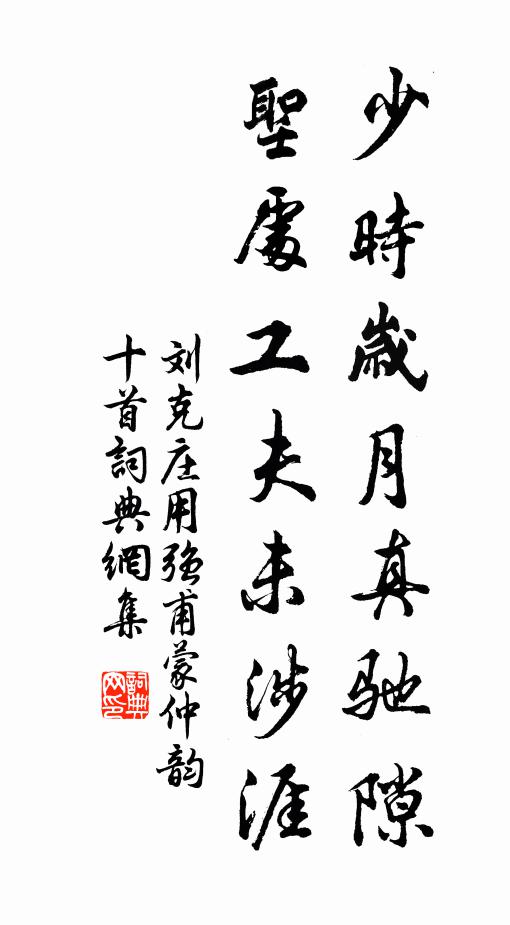 少時歲月真馳隙
聖處工夫未涉涯
刘克庄用强甫蒙仲韵
十首詞典網集
詞典
网印